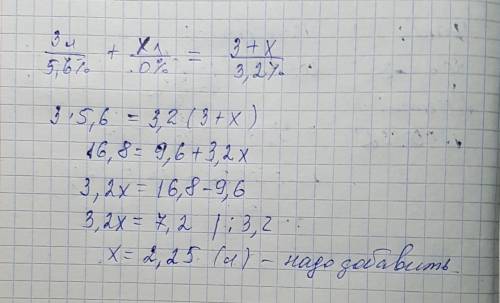 3л/5,6% + xл/0% = 3+x/3,2%
3·5,6 = 3,2(3+x)
16,8 = 9,6+3,2x
3,2x = 16,8-9,6
3,2x = 7,2 | : 3,2
x = 2,25 (л) - надо добавить.